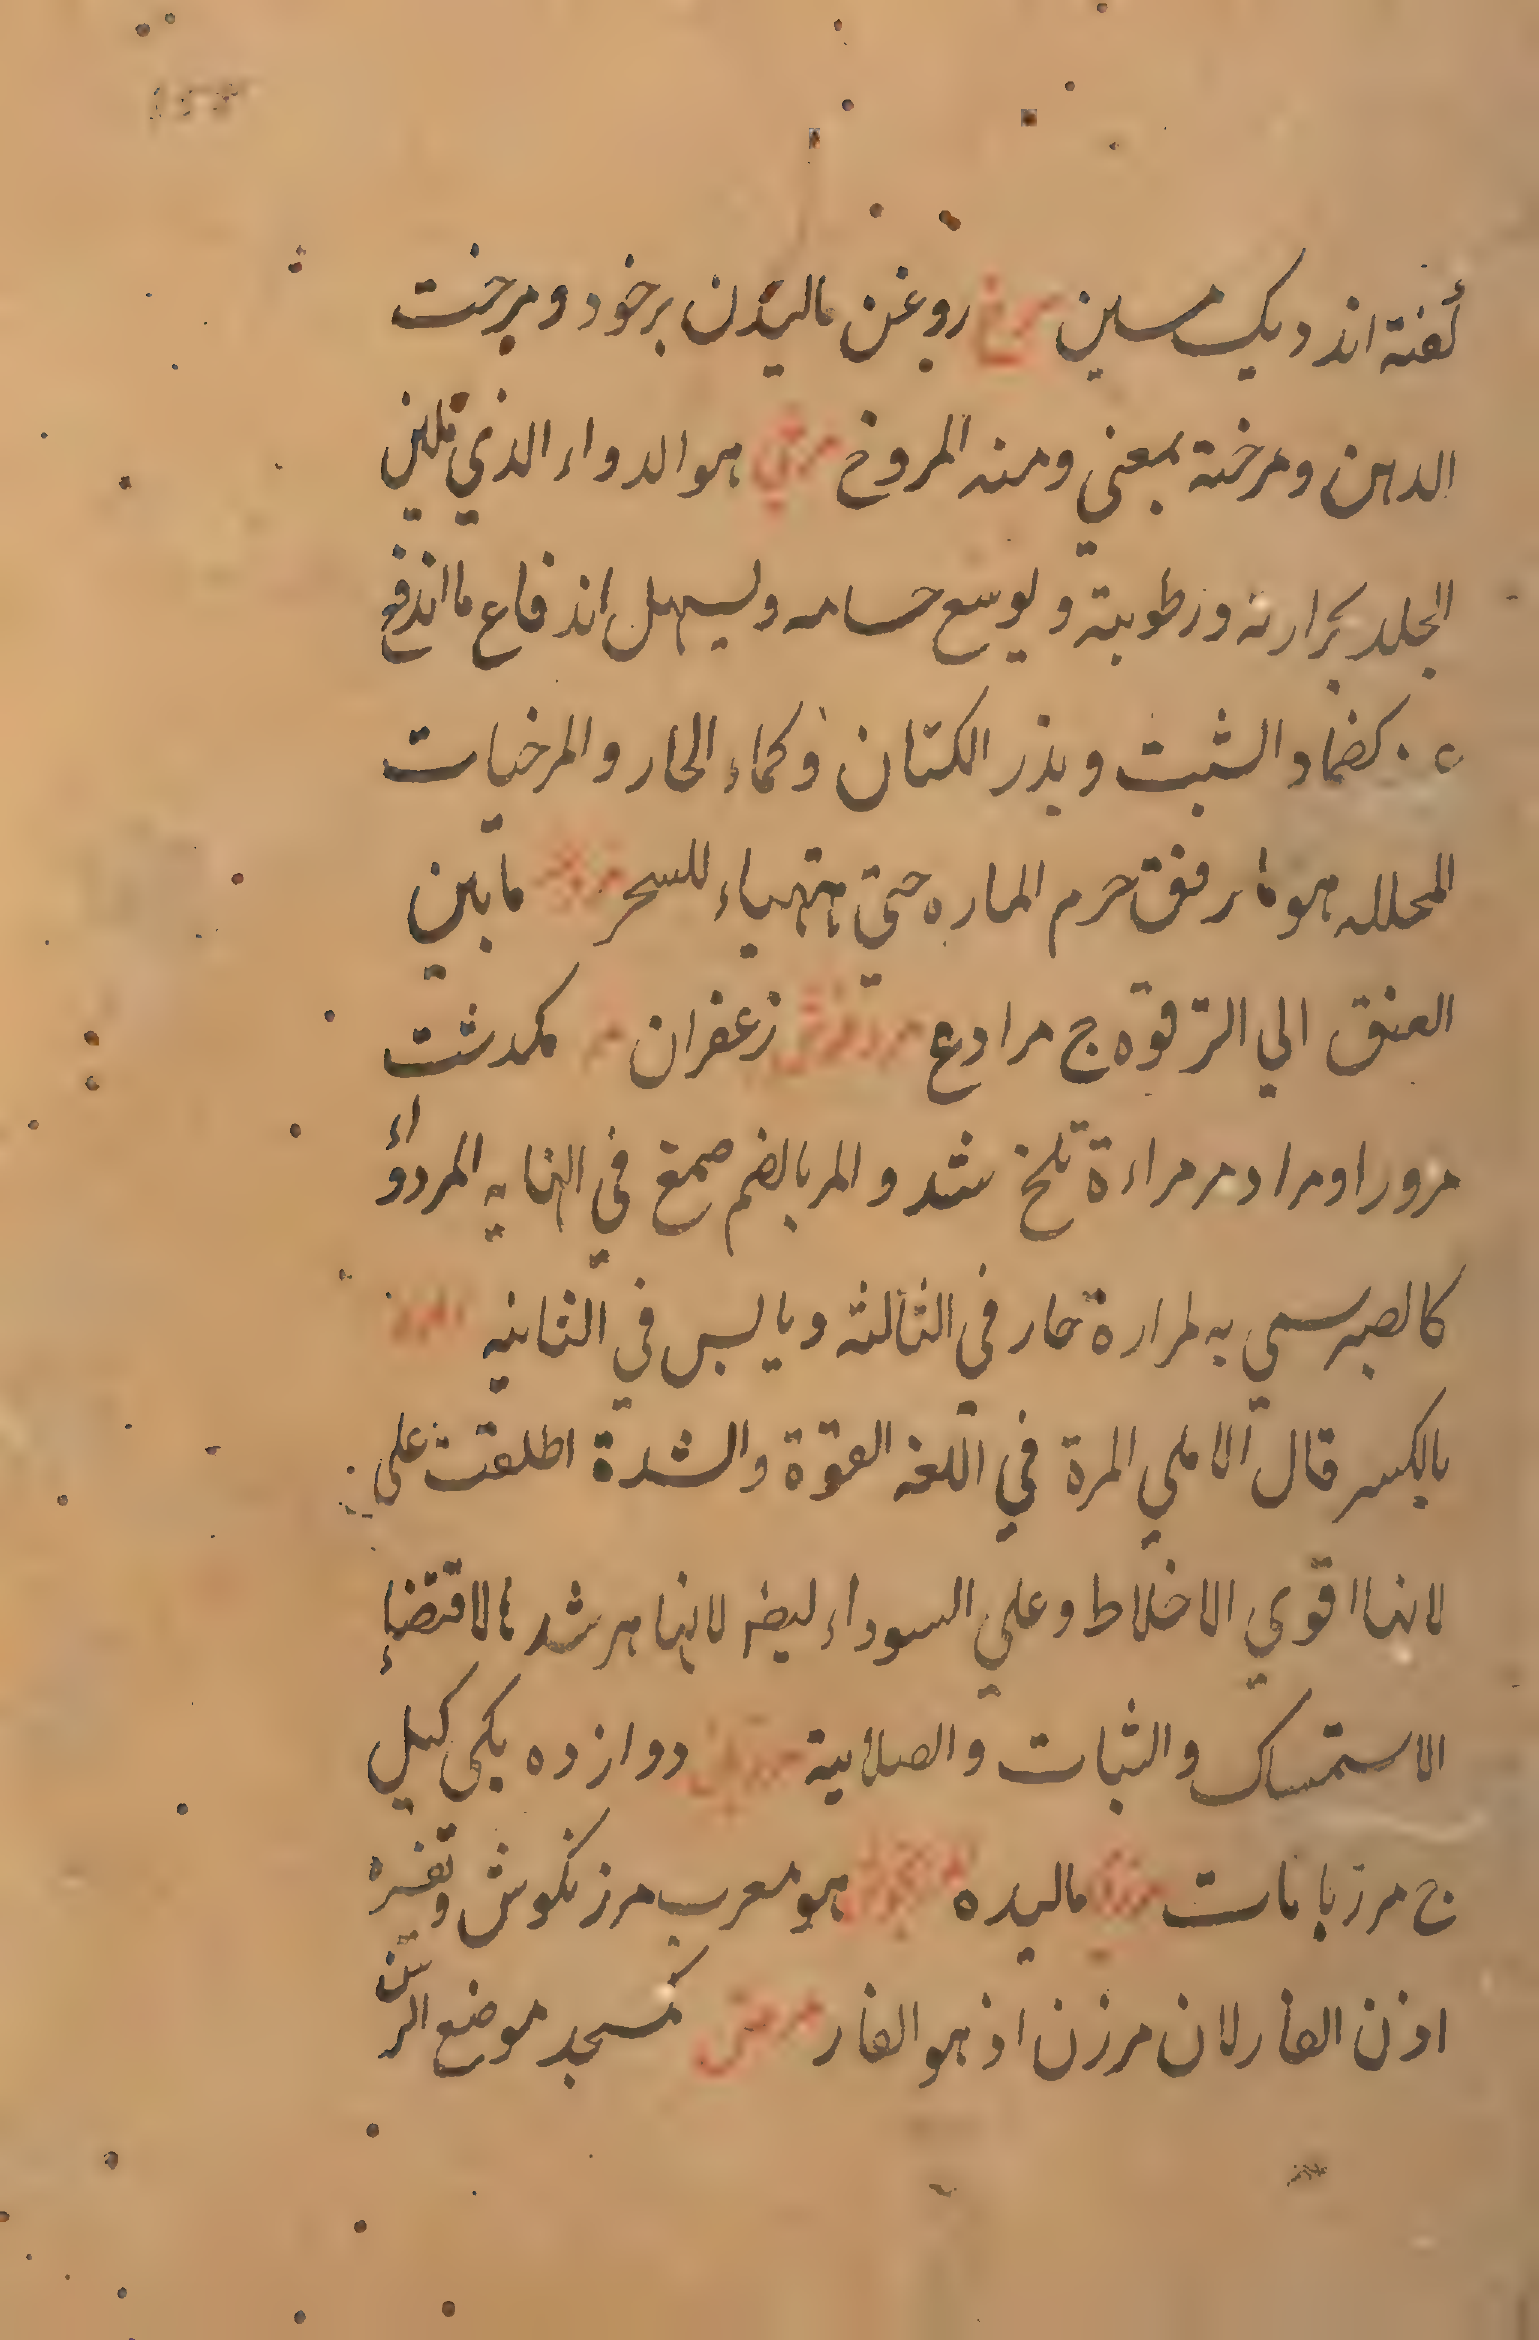 گفته اند دیک مسین مرخ روغن مالیدن برخود و مرخت
الدهن ومرخته بمعني ومنه المروخ مرخي هو الدواء الذي تلین
الجلد بحرارته ورطوبتة و یوسع مسامه ولیسهل اندفاع ما اندفع
کضماد الشبت و بذر الکتان وکماء الحار والمرخیات
المحلله هو ما رفق حرم الماره حتي یتهیاء للسحر ما بین
العنق الي الترقوه ج مرادع زعفران مر کمدشت
مرورا ومرا دمر مراءة تلخ شد والمر بالضم صمغ في النهایه المردواء
کالصبر سمي به لمرارة حار في الثالثه ویابس في الثانیه المرة
بالکسر قال الاملي المرة في اللغه القوة والشدة اطلقت علی
لانها اقوي الاخلاط وعلي السوداء لیضا لانها هر شد مالاقتضاء
الاستمساک والثبات والصلابیة دوازده یکی کیل
ج مرزبانات مالیده هو معرب مرزنکوش وتفسیره
اذن الفار لان مرزن اذ هو الفار مرسن کمسجد موضع الرسن